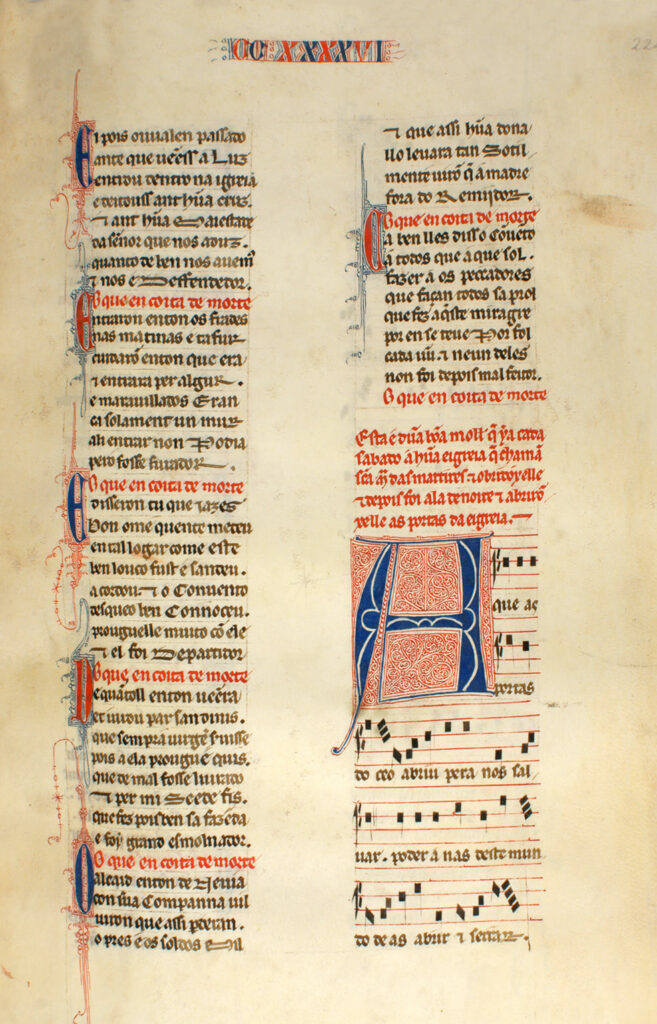 CCXXXXVI
E pois ouu alen passado
ante que ueess a Luz
entrou dentro na igreia
e deitouss ant hũa cruz.
⁊ ant hũa Maiestade
da señor que nos aduz.
quanto de ben nos auem9
⁊ nos e Deffendedor.
O que en coita de morte
Entraron enton os frades
nas matinas e ta fur
cuidarõ enton que era
⁊ entrara per algur.
e marauillados Eran
ca solament un mur
ali entrar non Podia
pero fosse furador.
O que en coita de morte
E disseron tu que iazes
bon ome quen te meteu
en tal logar come este
ben louco fust e sandeu.
acordou. ⁊ o Conuento
desque o ben Connoceu.
prougue lle muito cõ ele
⁊ el foi Departidor
O que en coita de morte
De quãto ll enton uẽera
et uidou par san dinis.
que sempr a uirgẽ seruisse
pois a ela prougue quis.
que de mal fosse liurado
⁊ per mi Scede fis.
que fez pois ben sa fazẽda
e foy grand esmolnador.
O que en coita de morte
O alcaid enton de Neuia
con sua Companna uil
uiron que assi pderan.
o pres e os soldos Mil
⁊ que assi hũa dona
llo leuara tan Sotil
mente uirõ q̃ a madre
fora do Remĳdor.
O que en coita de morte
E a ben lles diss o Coueto
Ca todos que a que sol.
fazer a os peccadores
que façan todos sa prol
que fez aq̃ste miragre
por en se teue Por fol
cada uũ. ⁊ neun deles
non foi depois mal feitor.
O que en coita de morte
Esta é dũa bõa moll q̃ ya cada
sabado a hũa eigreia q̃ chamã
scã mã das martires ⁊ obridouxelle
⁊ depois foi ala de noite ⁊ abrirõ
xelle as portas da eigreia.
A que as
portas
do ceo abriu pera nos sal
uar. poder a nas deste mun
do de as abrir ⁊ serrar.